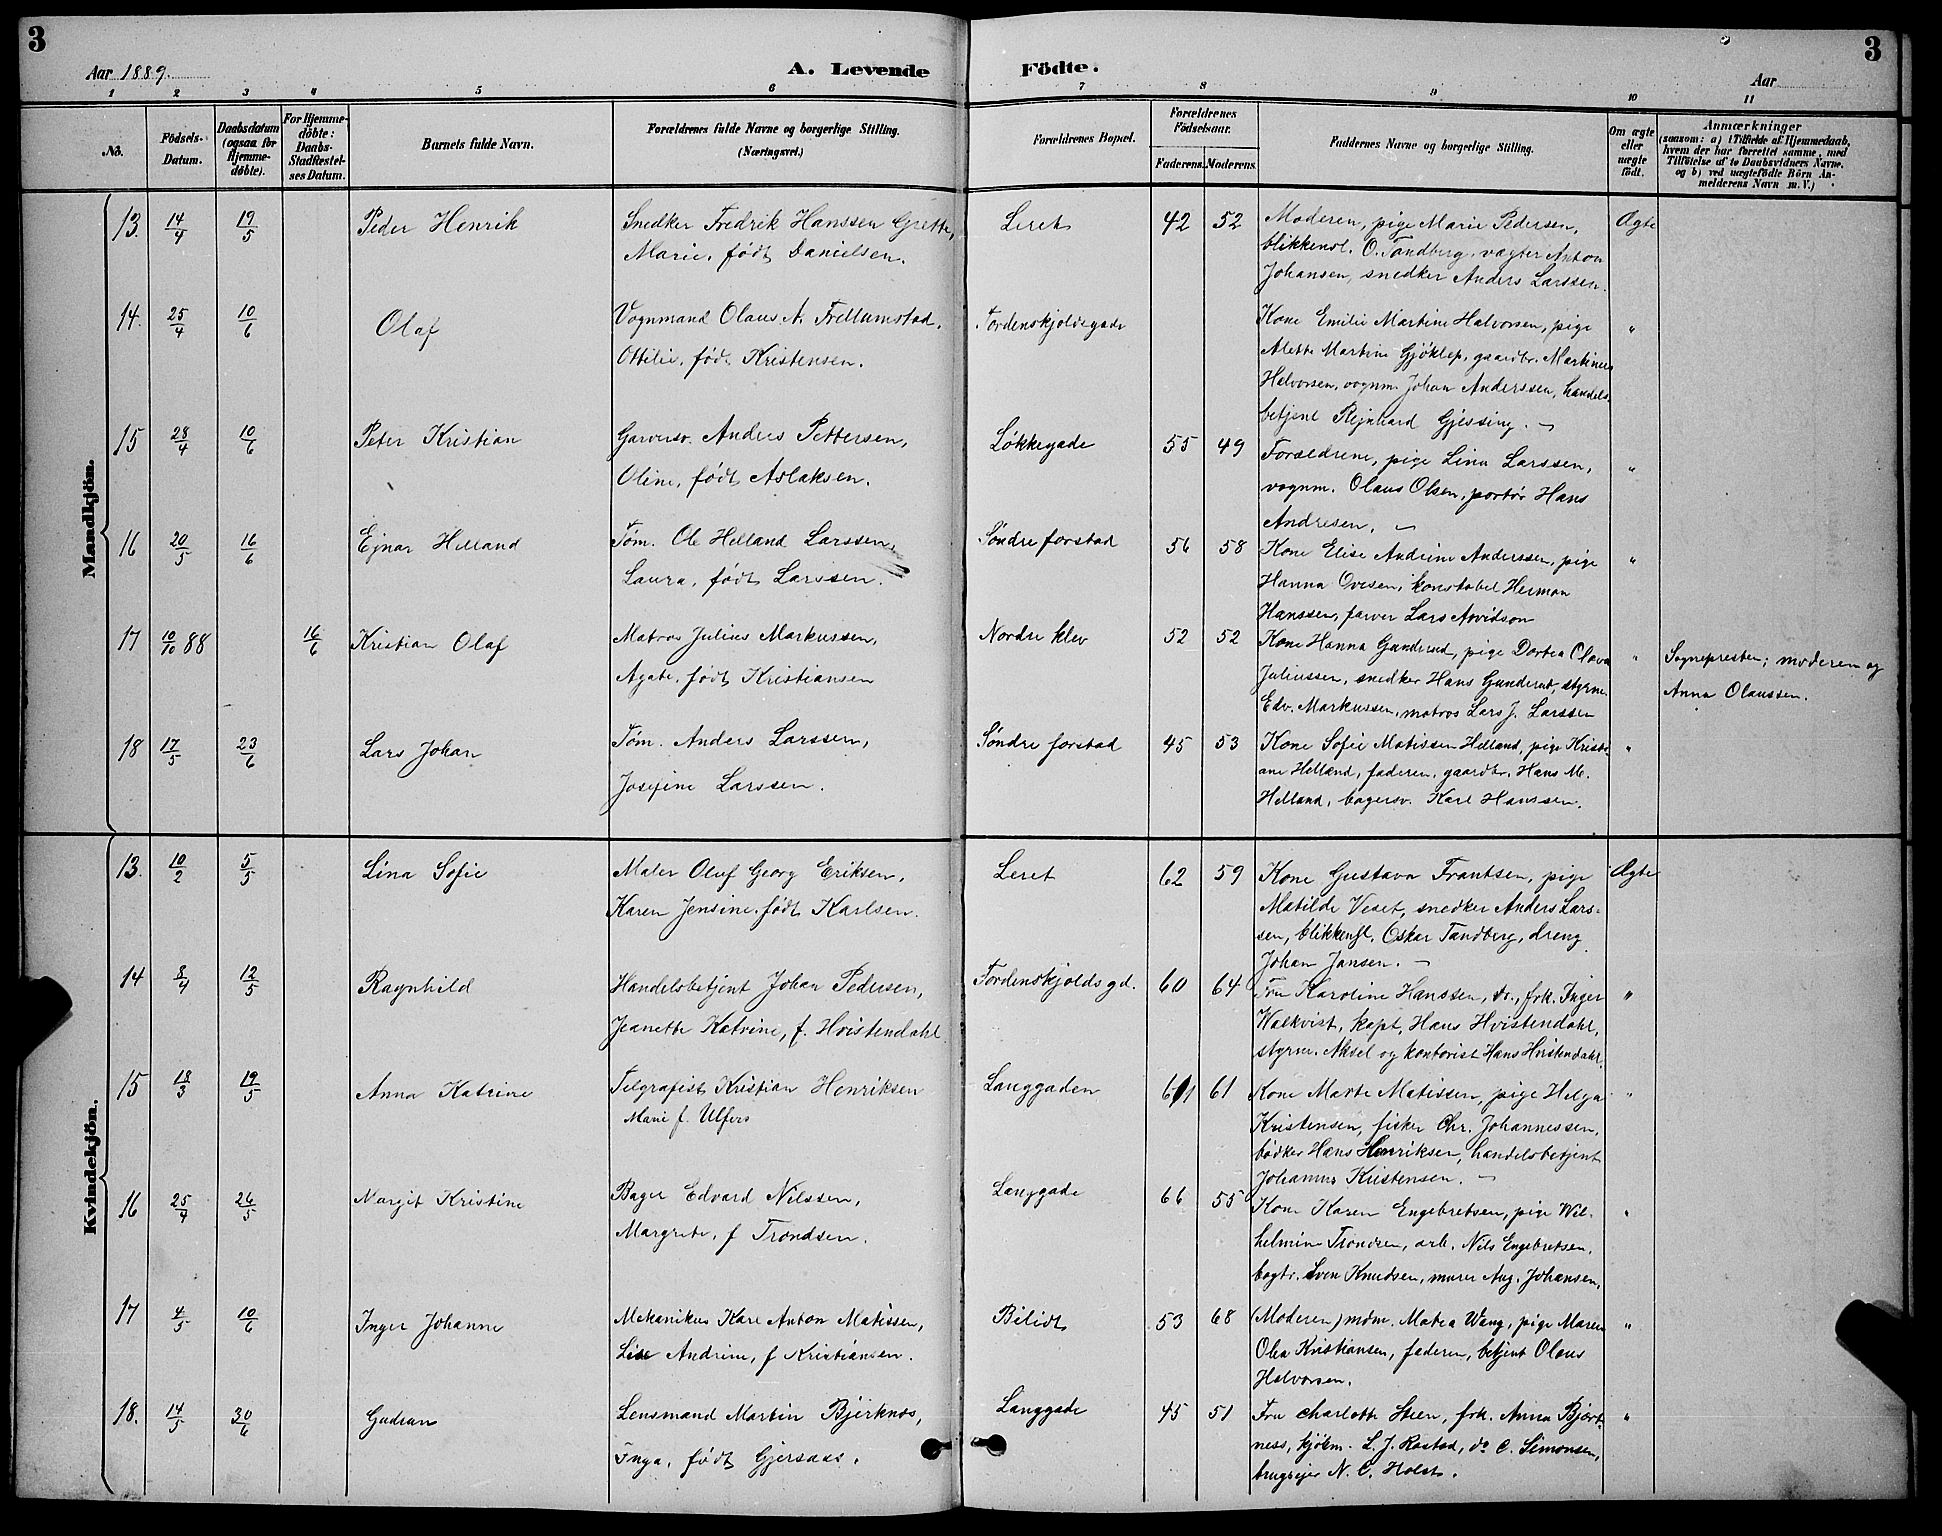 3
Aar 1889.
A. Levende Födte.
Aar
3
1 2 3 4 5 6 7 8 9 10 11
No.
Födsels-Datum.
Daabsdatum (ogsaa for Hjemme-döbte).
For Hjemme-döbte: Daabs-Stadfæstel-ses Datum.
Barnets fulde Navn.
Forældrenes fulde Navne og borgerlige Stilling. (Næringsvei.)
Forældrenes Bopæl.
Forældrenes Födselsaar.
Faderens. Moderens.
Faddernes Navne og borgerlige Stilling.
Om ægte eller uægte födt.
Anmærkninger
(saasom: a) i Tilfælde af Hjemmedaab, hvem der har forrettet samme, med Tilföielse af to Daabsvidners Navne, og b) ved uægtefödte Börn An-melderens Navn m. V.)
Mandkjön.
13. 14/4 19/5 Peder Henrik Snedker Fredrik Hanssen Grette, Leret 42 52 Moderen, pige Marie Pedersen, Ægte
Marie, født Danielsen. blikkensl. O. Tandberg, vægter Anton
Johansen, snedker Anders Larssen.
14. 25/4 10/6 Olaf Vognmand Olaus A. Frellumstad, Tordenskjoldsgade Kone Emilie Martine Halvorsen, pige "
Ottilie, født Kristensen. Alette Martine Gjøklep, gaardbr. Martinus
Halvorsen, vognm. Johan Anderssen, handels-
betjent Rejnhard Gjessing.
15 28/4 10/6 Peter Kristian Garversv. Anders Pettersen, Løkkegade 55 49 Forældrene, pige Lina Larssen, "
Oline, født Aslaksen. vognm. Olaus Olsen, portør Hans
Andresen.
16 20/5 16/6 Ejnar Helland Tøm. Ole Helland Larssen, Søndre forstad 56 58 Kone Elise Andrine Anderssen, pige "
Laura, født Larssen. Hanna Ovesen, konstabel Herman
Hanssen, farver Lars Arvidson
17 10/10 88 16/6 Kristian Olaf Matros Julius Markussen, Nordre klev 52 52 Kone Hanna Gunderud, pige Dortea Olava " Sognepresten; moderen og
Agate, født Kristiansen Juliussen, snedker Hans Gunderud, styrm. Anna Olaussen.
Edv. Markussen, matros Lars J. Larssen
18 17/5 23/6 Lars Johan Tøm. Anders Larssen, Søndre forstad 45 53 Kone Sofie Matissen Helland, pige Kristi- "
Josefine Larssen. ane Helland, faderen, gaardbr. Hans M.
Helland, bagersv. Karl Hanssen.
Kvindekjön.
13. 10/2 5/5 Lina Sofie Maler Oluf Georg Eriksen, Leret 62 59 Kone Gustava Frantsen, pige Ægte
Karen Jensine, født Karlsen. Matilde Veset, snedker Anders Lars-
sen, blikkensl. Oskar Tandberg, dreng
Johan Jansen.
14 8/4 12/5 Ragnhild Handelsbetjent Johan Pedersen, Tordenskjolds gd. 60 64 Fru Karoline Hanssen, do., frk. Inger "
Jeanette Katrine, f. Hvistendahl Walkvist, kapt. Hans Hvistendahl,
styrm. Aksel og kontorist Hans Hvistendahl.
15 18/3 19/5 Anna Katrine Telgrafist Kristian Henriksen Langgaden 61 61 Kone Marte Matissen, pige Helga "
Marie f. Ulfers Kristensen, fisker Chr. Johannessen,
bødker Hans Henriksen, handelsbetjent
Johannes Kristensen.
16 25/4 26/5 Margit Kristine Bager Edvard Nilssen, Langgade 66 55 Kone Karen Engebretsen, pige Wil- "
Margrete, f Trondsen. helmine Trondsen, arb. Nils Engebretsen,
bagtr. Sven Knudsen, murer Aug. Johansen,
17 4/5 10/6 Inger Johanne Mekanikus Karl Anton Matissen, Bilidt 53 68 (Moderen) mdm. Matea Wang, pige Maren "
Lise Andrine, f Kristiansen. Olea Kristiansen, faderen, betjent Olaus
Halvorsen.
18. 14/5 30/6 Gudrun Lensmand Martin Bjerknæs, Langgade 45 51 Fru Charlotte Steen, frk. Anna Bjerk- "
Inga, født Gjersøes. næss, kjøbm. L. J. Rostad, do C. Simonsen,
brugsejer N. C. Holst.